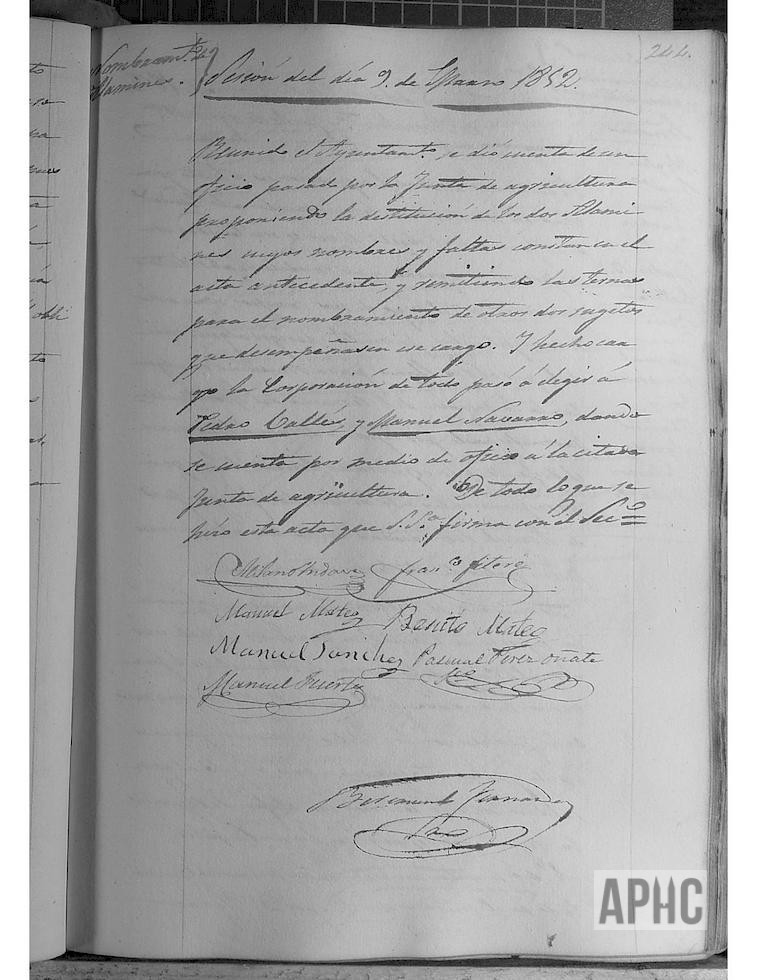 244.
Nombram.to de
Alamines.
Sesión del día 9. de Marzo 1852.
Reunido el Ayuntam.to se dió cuenta de un
oficio pasado por la Junta de agricultura
proponiendo la destitución de los dos Alami-
nes cuyos nombres y faltas constan en el
acta antecedente, y remitiendo las ternas
para el nombramiento de otros dos sugetos
que desempeñasen ese cargo. Y hecho car
go la Corporación de todo pasó á elegir á
Pedro Vallés, y Manuel Navarro, dando
se cuenta por medio de oficio á la citada
Junta de agricultura. De todo lo que se
hizo esta acta que S.S.a firma con el Sec.o =
Fran.co Fitero
Manuel Mateo Benito Mateo
Manuel Sanchez Pascual Perez Oñate
Manuel Fuertes
Srio
APHC